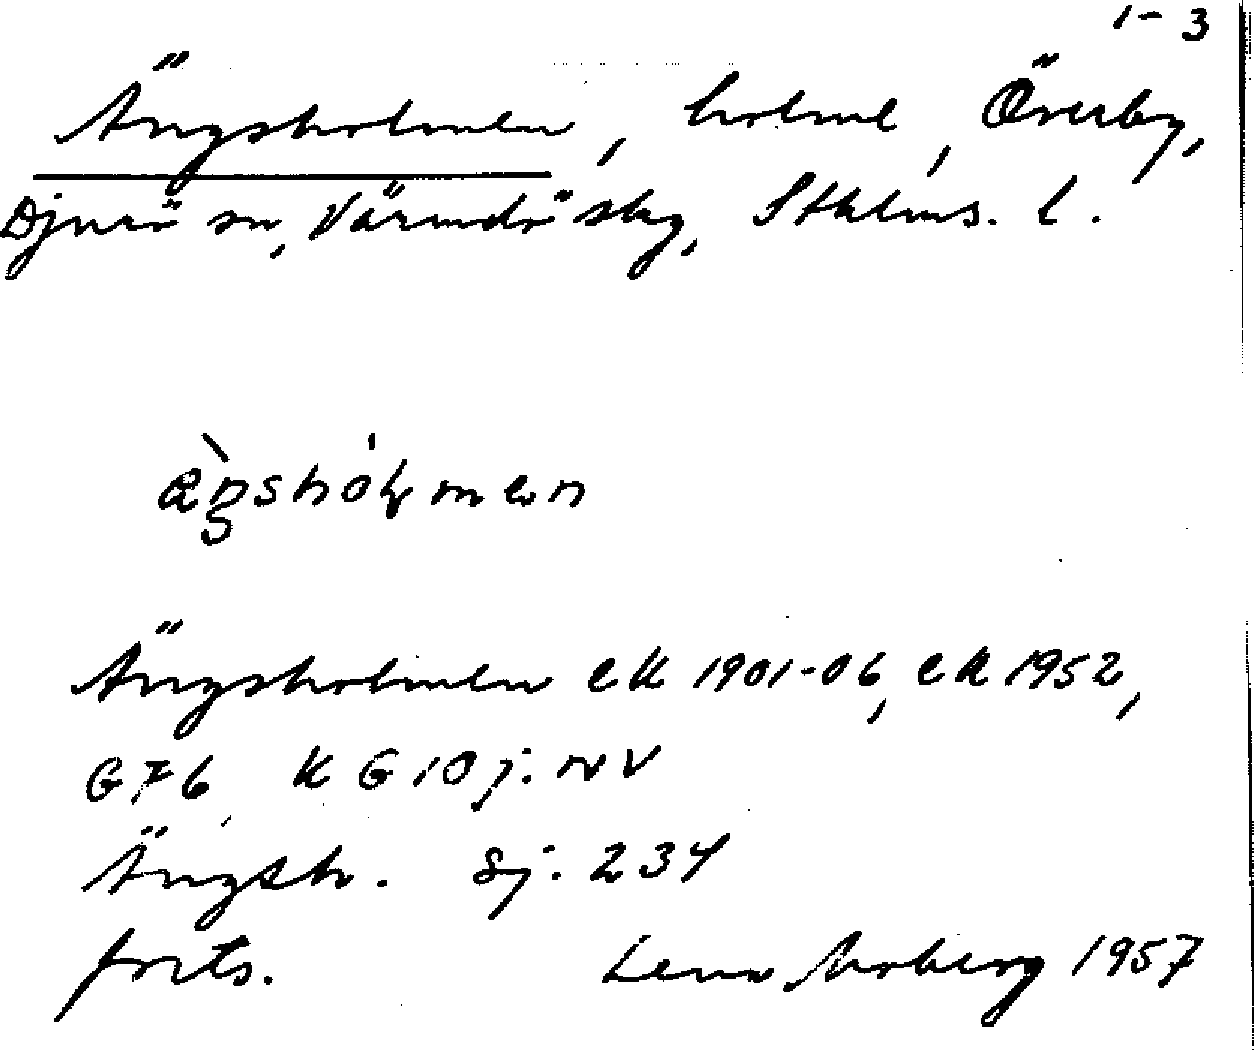 1-3
Ängsholmen, holme, Överby,
Djurö sn, Värmdö skg, Sthlms. l.
Ängsholmen ek 1901-06, ek 1952,
G76, K G10j. NV
Ängsh. Sj. 234
forts. Lena Moberg 1957